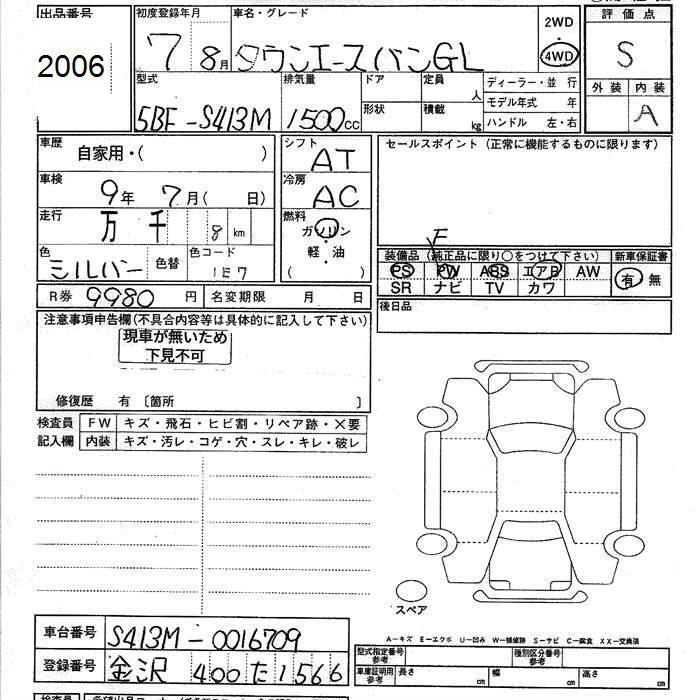 出品番号 初度登録年月 車名・グレード 2WD 評価点
2006 7 8月 タウンエースバンGL 4WD S
型式 排気量 ドア 定員 ディーラー・並行 外装 内装
人 モデル年式 年
5BF-S413M 1500cc 形状 積載 kg ハンドル 左・右 A
車歴 自家用・( ) シフト AT セールスポイント(正常に機能するものに限ります)
車検 9年 7月( 日) 冷房 AC
走行 万 千 8 km 燃料 ガソリン
軽・油
( )
F
色 シルバー 色替 色コード 1E7
装備品(純正品に限り○をつけて下さい) 新車保証書
PS PW ABS エアB AW 有・無
SR ナビ TV カワ
R券 9980円 名変期限 月 日 後日品
注意事項申告欄(不具合内容等は具体的に記入して下さい)
現車が無いため
下見不可
修復歴 有 〔箇所 〕
検査員 FW キズ・飛石・ヒビ割・リペア跡・X要
記入欄 内装 キズ・汚レ・コゲ・穴・スレ・キレ・破レ
スペア
A-キズ E-エクボ U-凹み W-補修跡 S-サビ C-腐食 XX-交換済
車台番号 S413M-0016709
型式指定番号 参考 種別区分番号 参考
登録番号 金沢 400 た 1566
車庫証明用 参考 長さ cm 幅 cm 高さ cm